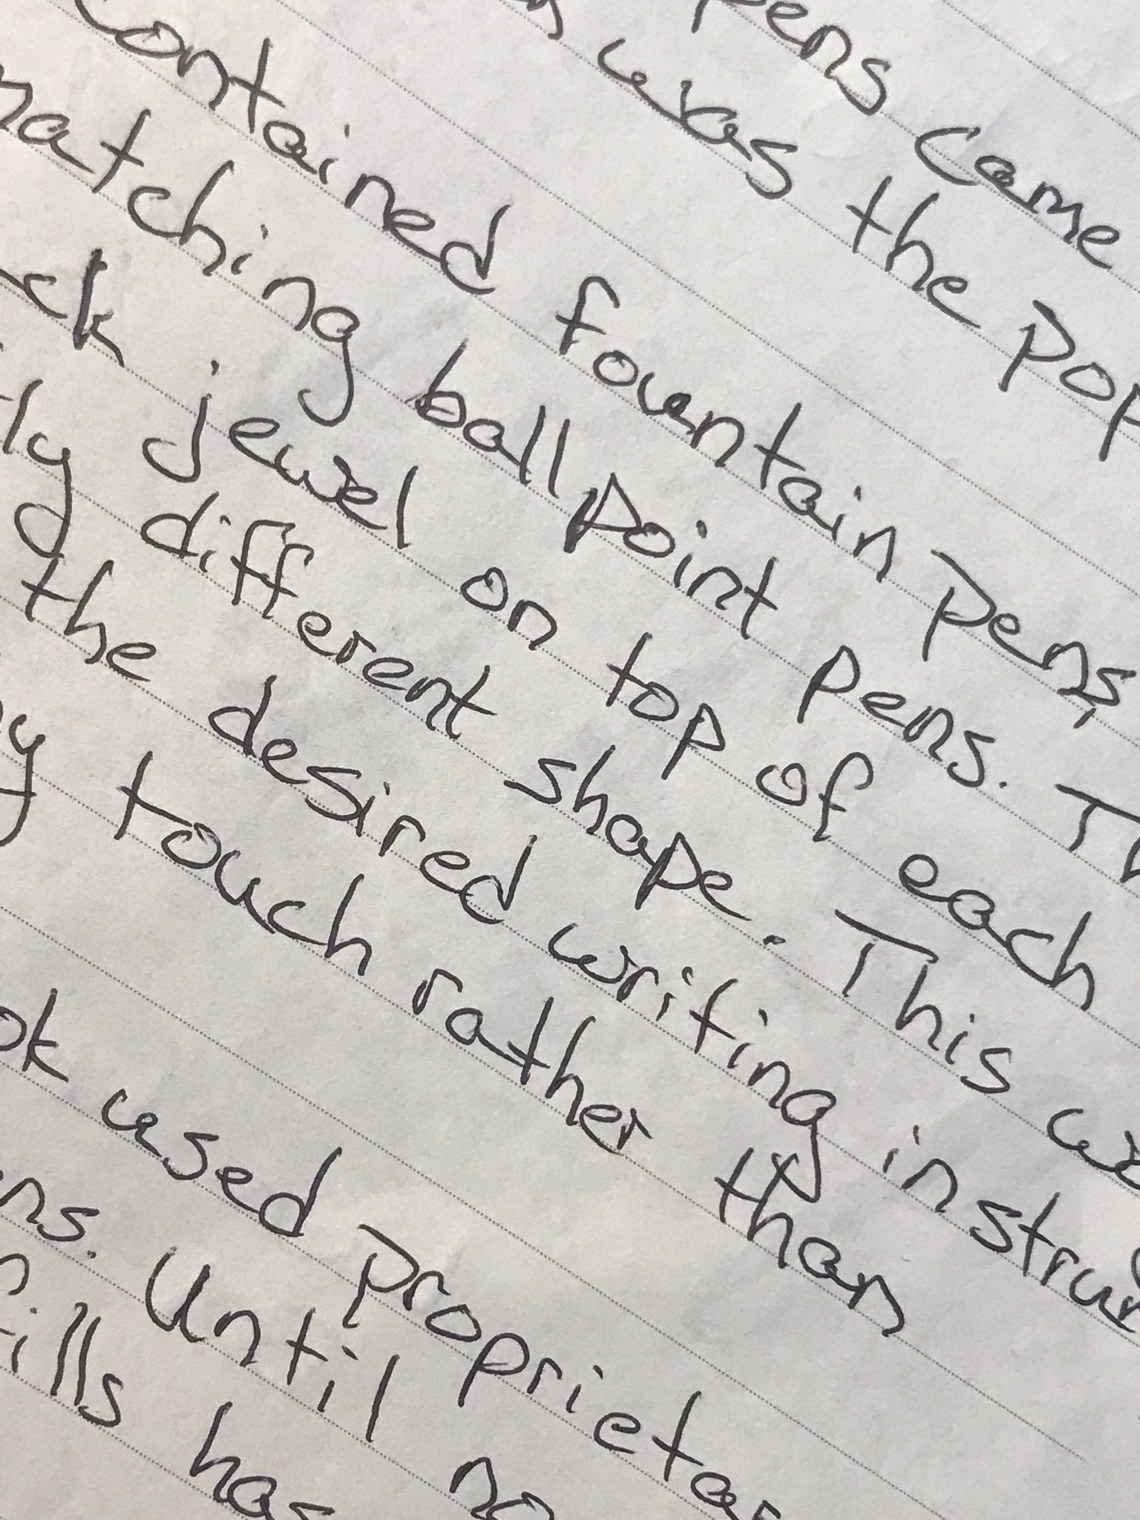 pens came
was the pop
contained fountain pens,
matching ballpoint pens. Th
ck jewel on top of each
ly different shape. This wa
the desired writing instru
y touch rather than
ok used proprieta
ns. Until no
ills has